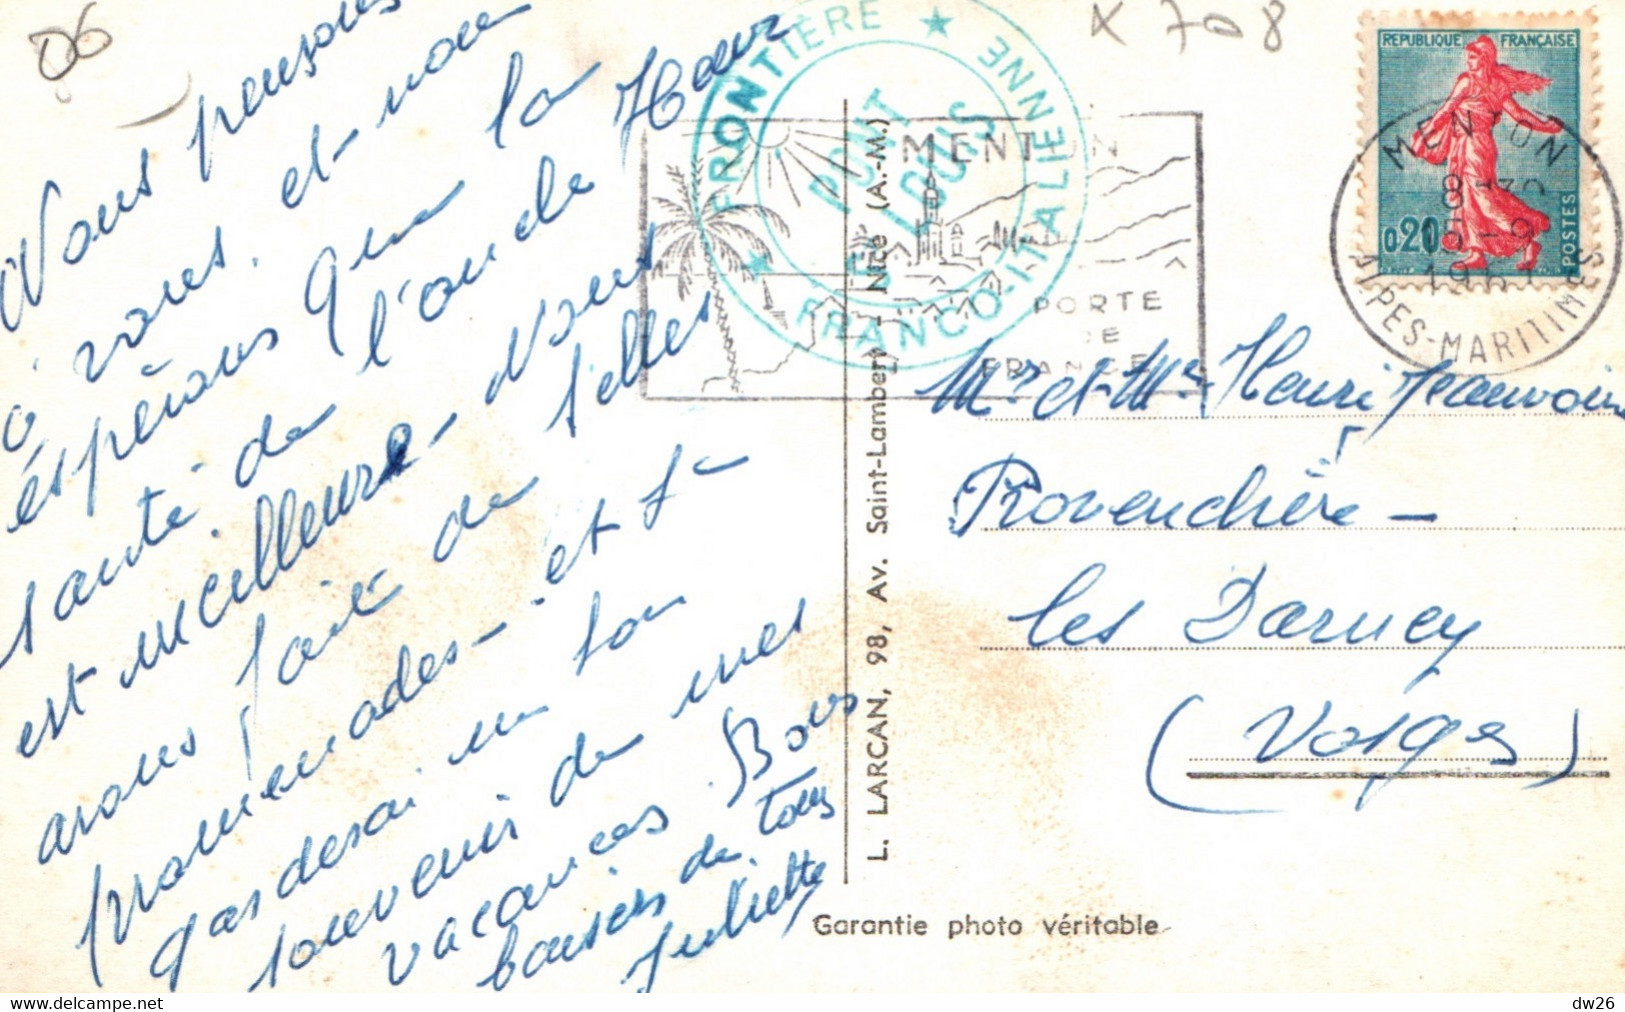 06
x 708
Nous pensons
à vous. et nous
espérons que la
santé de l'oncle Henri
est meilleure - Nous
avons fait de belles
promenades - et je
garderai un bon
souvenir de mes
vacances. Bons
baisers de tous
Juliette
FRONTIÈRE ★ FRANCO-ITALIENNE ★
PONT
ST LOUIS
MENTON
PORTE
DE
FRANCE
REPUBLIQUE FRANÇAISE
0,20
POSTES
MENTON
8 H30
5-9
1961
ALPES-MARITIMES
L. LARCAN, 98, Av. Saint-Lambert - Nice (A.-M.)
Mr et Mme Henri Jeanvoine
Provenchère -
les Darney
(Vosges)
Garantie photo véritable
dw26